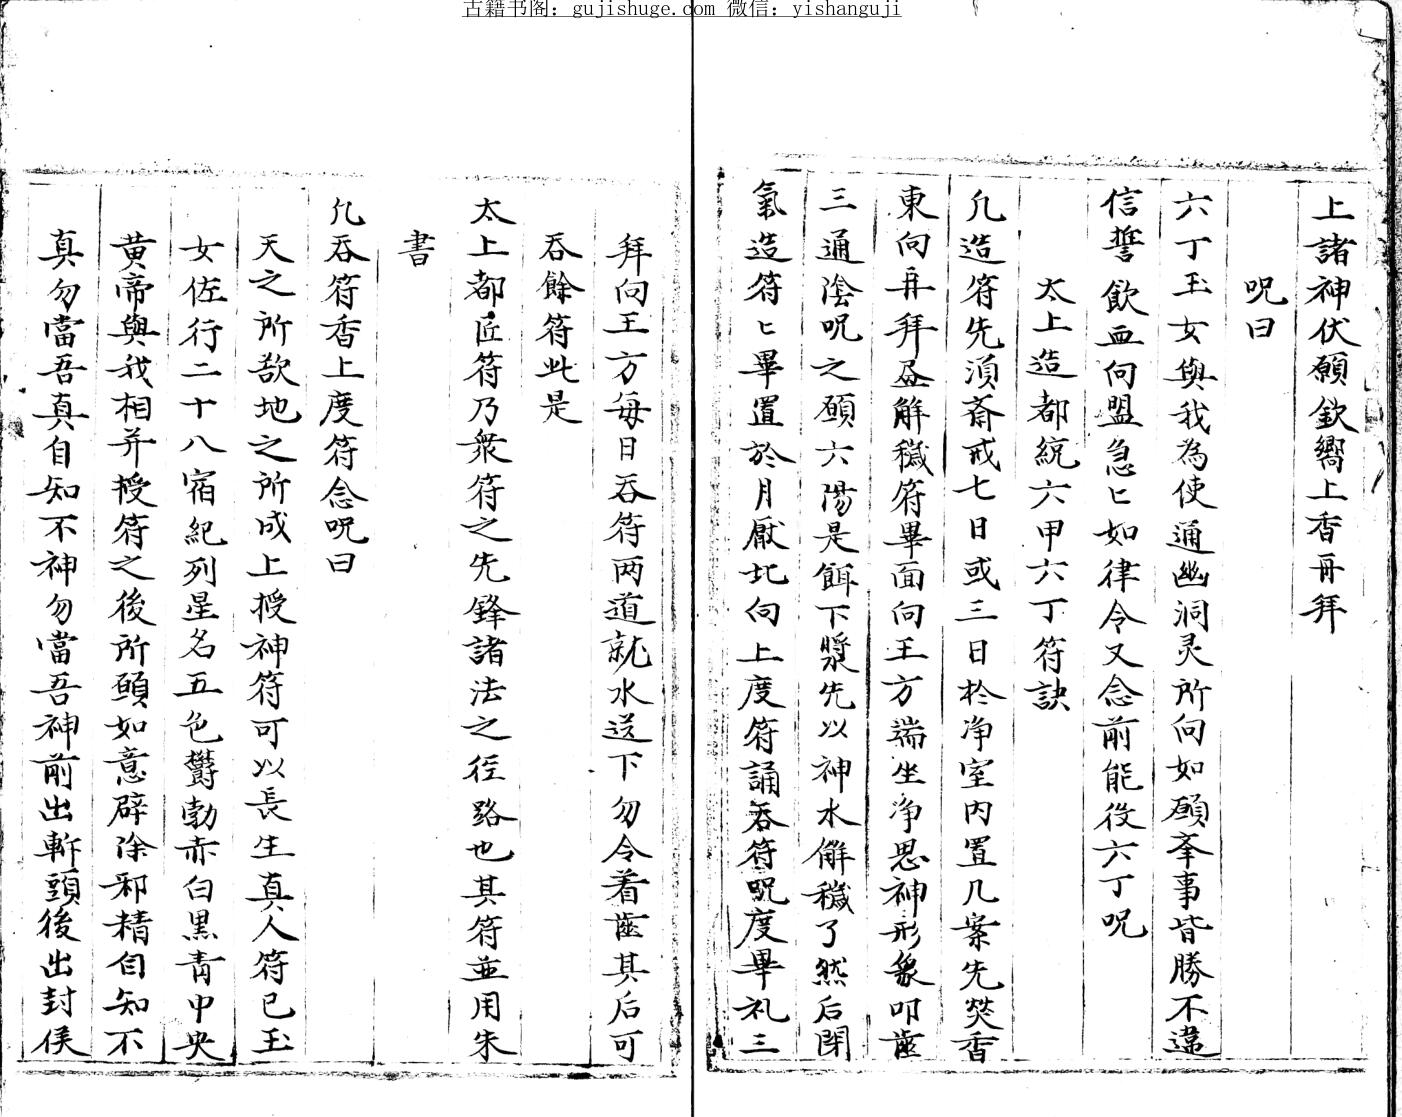 古籍书阁：gujishuge.com 微信：yishanguji
上諸神伏願欽嚮上香再拜
呪曰
六丁玉女與我為使通幽洞灵所向如願李事皆勝不違
信誓飲血向盟急匕如律令又念前能役六丁呪
太上造都統六甲六丁符訣
凢造符先湏斎戒七日或三日於净室内置几案先焚香
東向再拜盝解穢符畢面向王方端坐净思神形象叩齒
三通陰呪之願六陽是餌下漿先以神水解穢了然后閉
氣造符匕畢置於月厭北向上度符誦吞符呪度畢礼三
拜向王方每日吞符两道就水送下勿令着齒其后可
吞餘符此是
太上都匠符乃衆符之先鋒諸法之径路也其符並用朱
書
凢吞符香上度符念呪曰
天之所敌地之所成上授神符可以長生真人符已玉
女佐行二十八宿紀列星名五色欝勃赤白黑青中央
黄帝與我相并授符之後所願如意辟除邪精自知不
真勿當吾真自知不神勿當吾神前出斬頭後出封侯